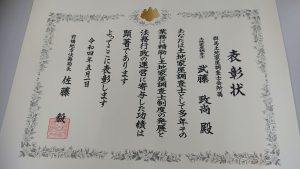 表彰状
群馬土地家屋調査士会所属
土地家屋調査士
武藤政尚 殿
あなたは土地家屋調査士として多年その
業務に精励し土地家屋調査士制度の発展と
法務行政の運営に寄与した功績は
顕著であります
よってここに表彰します
令和四年五月二日
前橋地方法務局長 佐藤毅